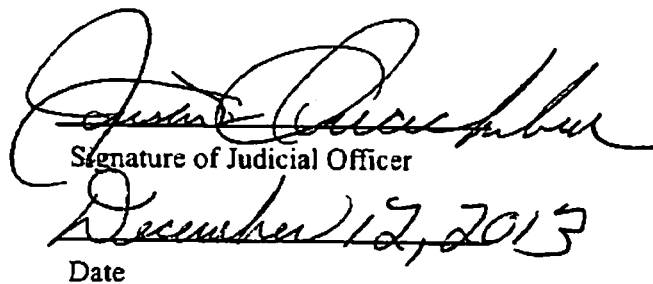 Signature of Judicial Officer
December 12, 2013
Date